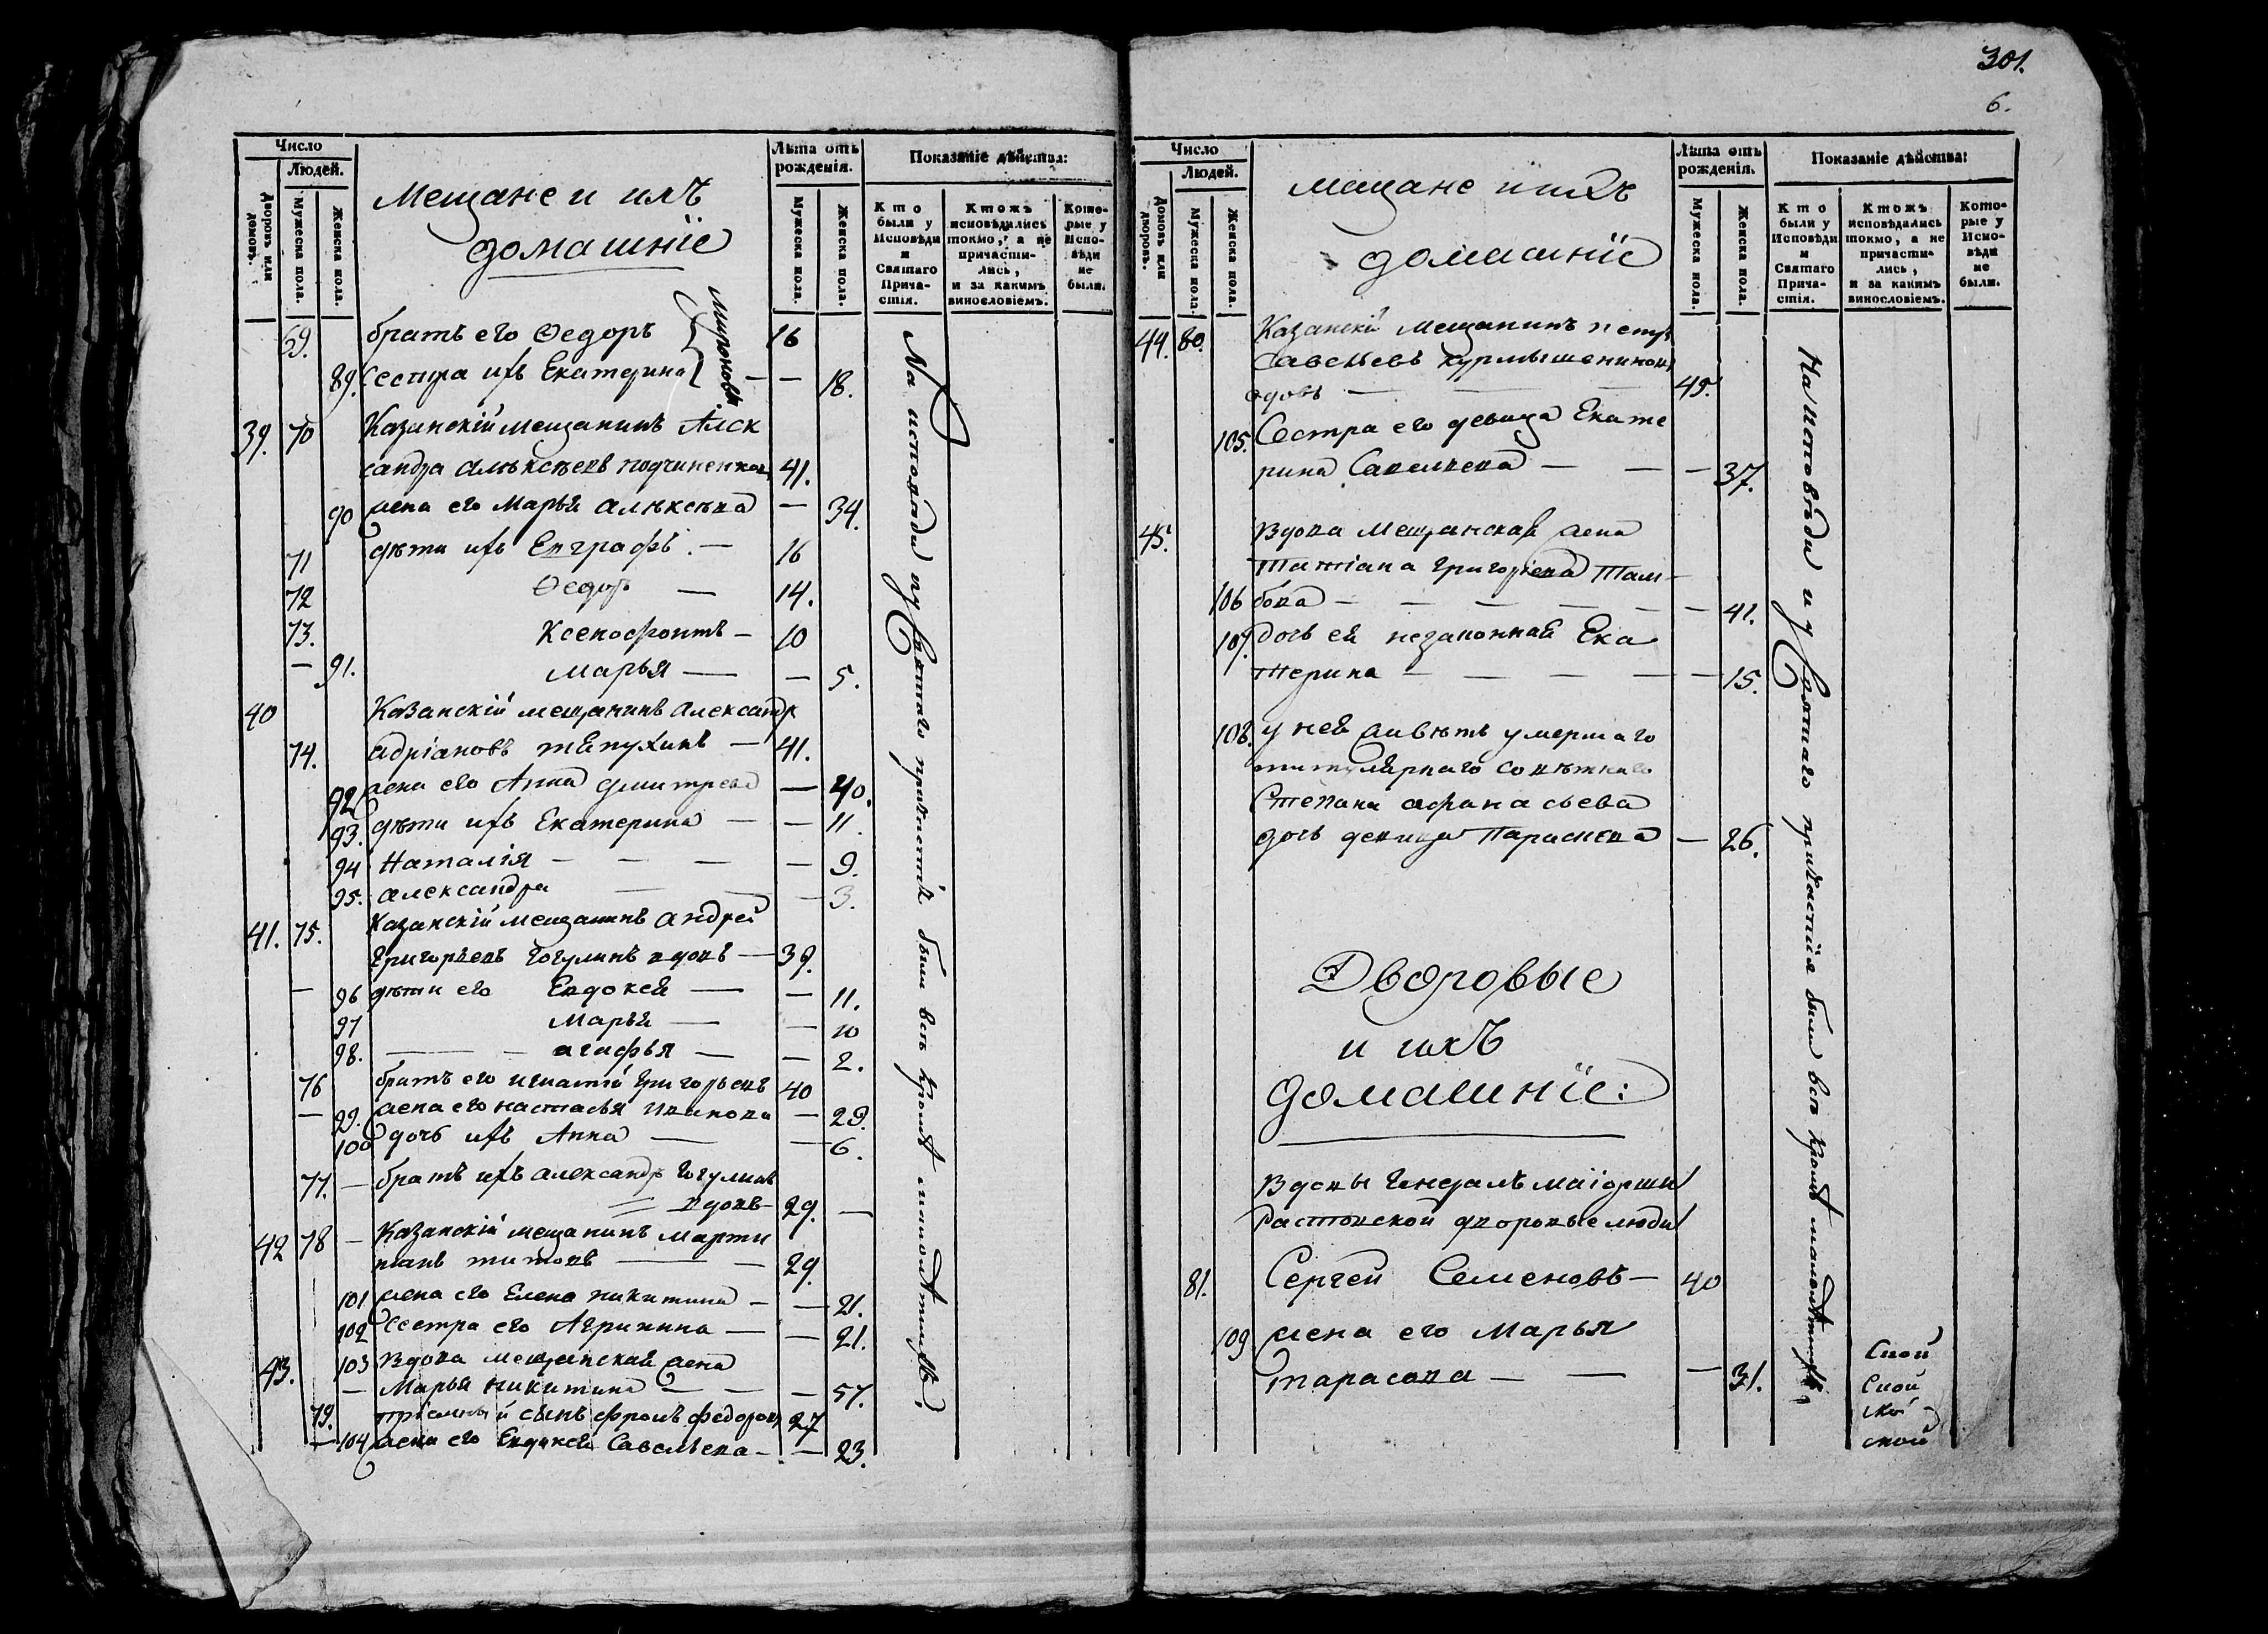 301.
6.
Число
Людей.
Дворовъ или домовъ.
Мужеска пола.
Женска пола.
Мещане и ихъ
домашніе
Лѣта отъ рожденія.
Мужеска пола.
Женска пола.
Показаніе дѣйства:
Кто были у Исповѣди и Святаго Причастія.
Ктожъ исповѣдались токмо, а не причастились, и за какимъ винословіемъ.
Которые у Исповѣди не были.
69. братъ его Ѳедоръ 16
Мироновы
89. сестра ихъ Екатерина — — 18.
39. 70 Казанскій мещанинъ Алек
сандра Алѣксѣевъ 41.
90 жена его Марья Алѣксѣва — 34.
71 дѣти ихъ Евграфъ — 16
72 Ѳедоръ — 14.
73. Ксенофонтъ — 10
— 91. Марья — — 5.
40 Казанскій мещанинъ Александръ
74. Адріановъ — 41.
92 жена его Анна Дмитрева — 40.
93. дѣти ихъ Екатерина — — 11.
94 Наталія — — — — 9.
95. Александра — — — 3.
41. 75. Казанскій мещанинъ Андрей
Григорьевъ Гогулинъ вдовъ — 39.
— 96 дѣти его Евдокея — — 11.
97 Марья — — 10
98. — — Агафья — — 2.
76 братъ его Игнатій Григорьевъ 40
— 99. жена его Настасья Иванова — 29.
100 дочь ихъ Анна — — 6.
77. — братъ ихъ Александръ Гогулинъ
вдовъ — 29. —
42 78 — Казанскій мещанинъ Марти
нианъ Титовъ — — 29.
101 жена его Елена Никитина — — 21.
102 Сестра его Агрипина — — 21.
43. 103 Вдова мещанская жена
— Марья Никитина — — — 57.
79. пріемный сынъ Фролъ Федоровъ 27
— 104 жена его Евдокея Савельева — — 23.
На исповѣди и у Святаго причастія были всѣ кромѣ малолѣтныхъ
Число
Людей.
Домовъ или дворовъ.
Мужеска пола.
Женска пола.
мещане и ихъ
домашніе
Лѣта отъ рожденія.
Мужеска пола.
Женска пола.
Показаніе дѣйства:
Кто были у Исповѣди и Святаго Причастія.
Ктожъ исповѣдались токмо, а не причастились, и за какимъ винословіемъ.
Которые у Исповѣди не были.
44. 80. Казанскій мещанинъ Петръ
Савельевъ Курмышениковъ
вдовъ — — — 45.
105. Сестра его девица Екате
рина Савельева — — — 37.
45. Вдова мещанская жена
Татіана Григорьева Там-
106 бова — — — — — — 41.
107. дочь ея незаконная Ека
терина — — — — — 15.
108. у нея живетъ умершаго
титулярнаго совѣтника
Степана Афанасьева
дочь девица Параскева — 26.
Дворовые
и ихъ
домашніе:
Вдовы Генералъ маіорши
Растовской дворовые люди
81. Сергей Семеновъ — 40
109 жена его Марья
Тарасова — — — 31.
На исповѣди и у Святаго причастія были всѣ кромѣ малолѣтныхъ